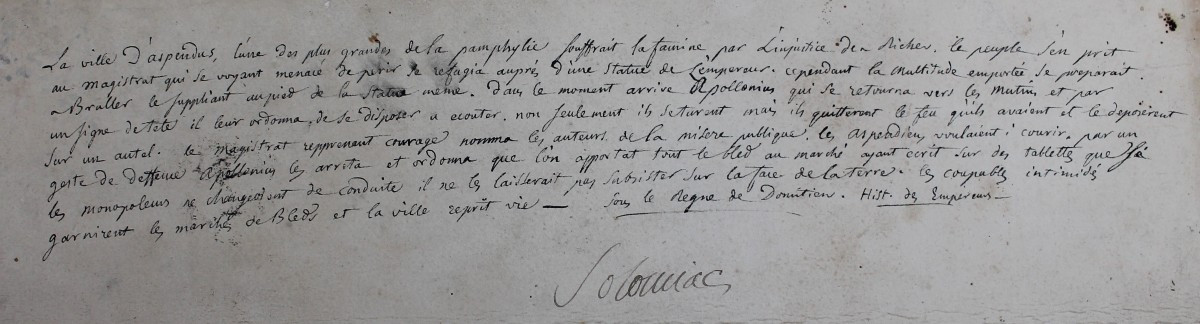 La ville D'aspendus, l'une des plus grandes de la pamphylie souffrait la famine par L'injustice de Riches. le peuple s'en prit
au magistrat qui se voyant menacé de perir se refugia auprés d'une statue de L'empereur. cependant la Multitude emportée se preparait
a Bruller le suppliant au pied de la statue même. Dans le moment arrive Apollonius qui se retourna vers les Mutins et par
un signe de tete il leur ordonna de se disposer a ecouter. non seulement ils se turent mais ils quitterent le feu qu'ils avaient et le deposérent
sur un autel. le magistrat reprenant courage nomma les auteurs de la misere publique. les aspendiens voulaient i courir. par un
geste de deffense Apollonius les arrita et ordonna que l'on apportat tout le bled au marché ayant ecrit sur des tablettes que si
les monopoleurs ne changeoient de conduite il ne les laisserait pas subsister sur la face de la terre. les coupables intimidés
garnirent les marchés de Bleds et la ville reprit vie — sous le Regne de Domitien. Hist. des Empereurs —
Solomiac